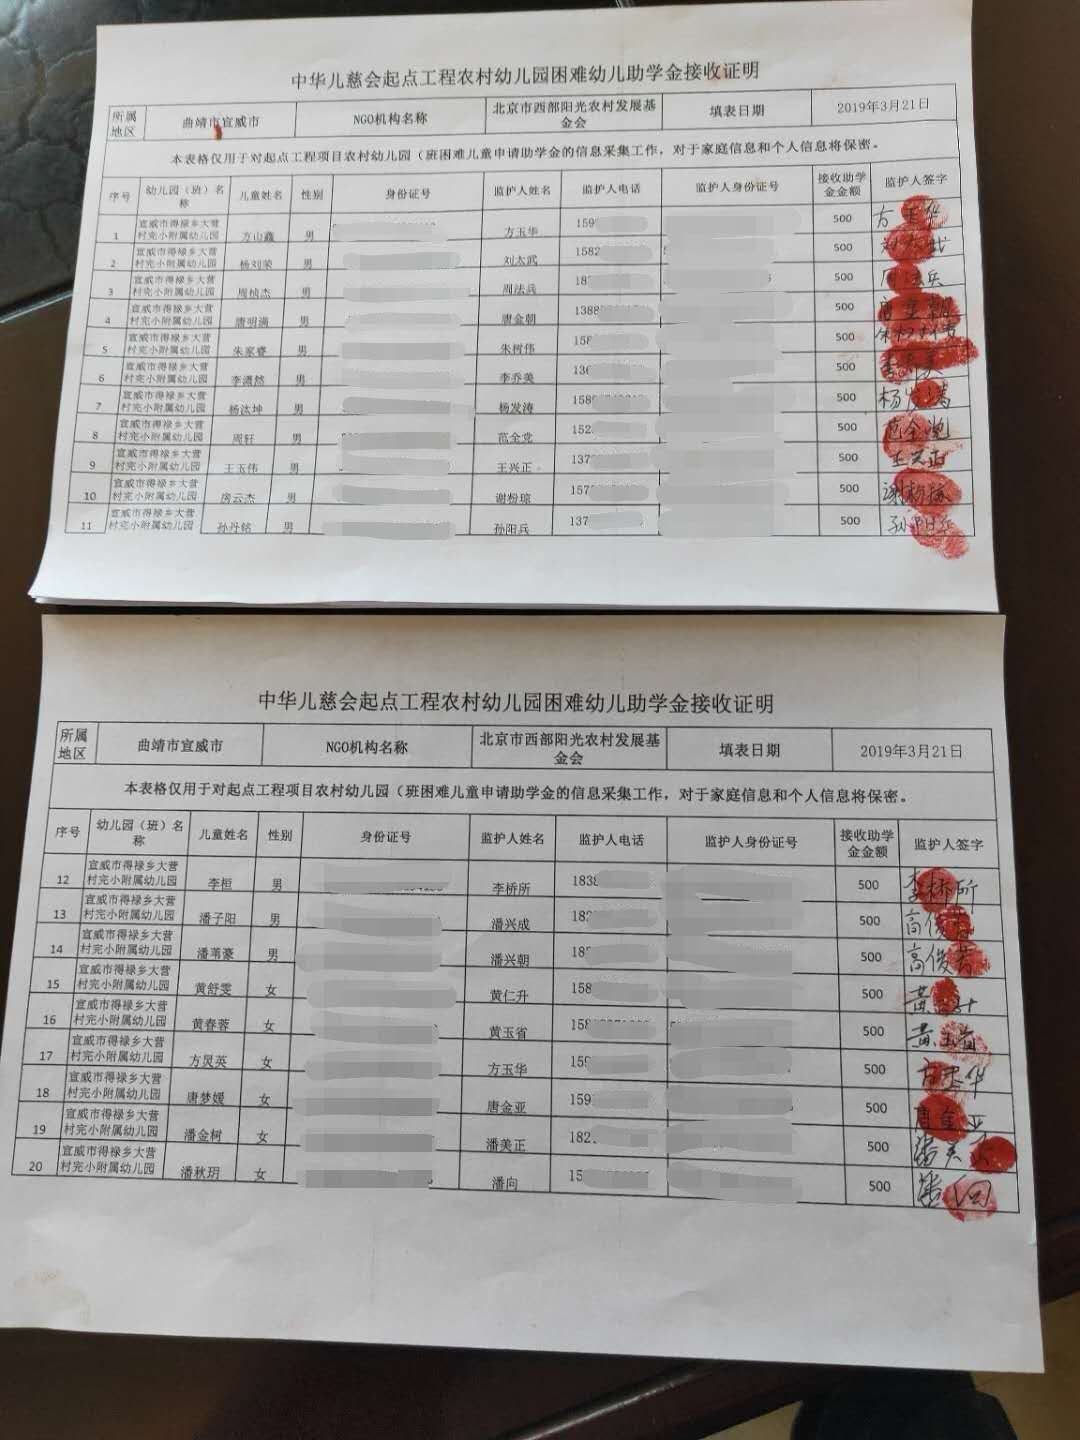 中华儿慈会起点工程农村幼儿园困难幼儿助学金接收证明
所属地区 曲靖市宣威市 NGO机构名称 北京市西部阳光农村发展基金会 填表日期 2019年3月21日
本表格仅用于对起点工程项目农村幼儿园（班困难儿童申请助学金的信息采集工作，对于家庭信息和个人信息将保密。
序号 幼儿园（班）名称 儿童姓名 性别 身份证号 监护人姓名 监护人电话 监护人身份证号 接收助学金金额 监护人签字
1 宣威市得禄乡大营村完小附属幼儿园 方山鑫 男 方玉华 159 500 方玉华
2 宣威市得禄乡大营村完小附属幼儿园 杨刘荣 男 刘太武 1582 500 刘太武
3 宣威市得禄乡大营村完小附属幼儿园 周桢杰 男 周法兵 18 500 周法兵
4 宣威市得禄乡大营村完小附属幼儿园 唐明满 男 唐金朝 1388 500 唐金朝
5 宣威市得禄乡大营村完小附属幼儿园 朱家睿 男 朱树伟 158 500
6 宣威市得禄乡大营村完小附属幼儿园 李潇然 男 李乔美 136 500
7 宣威市得禄乡大营村完小附属幼儿园 杨汰坤 男 杨发涛 158 500 杨发涛
8 宣威市得禄乡大营村完小附属幼儿园 周轩 男 范全党 152 500
9 宣威市得禄乡大营村完小附属幼儿园 王玉伟 男 王兴正 137 500 王兴正
10 宣威市得禄乡大营村完小附属幼儿园 房云杰 男 谢粉琼 157 500 谢粉琼
11 宣威市得禄乡大营村完小附属幼儿园 孙丹铭 男 孙阳兵 137 500 孙阳兵
中华儿慈会起点工程农村幼儿园困难幼儿助学金接收证明
所属地区 曲靖市宣威市 NGO机构名称 北京市西部阳光农村发展基金会 填表日期 2019年3月21日
本表格仅用于对起点工程项目农村幼儿园（班困难儿童申请助学金的信息采集工作，对于家庭信息和个人信息将保密。
序号 幼儿园（班）名称 儿童姓名 性别 身份证号 监护人姓名 监护人电话 监护人身份证号 接收助学金金额 监护人签字
12 宣威市得禄乡大营村完小附属幼儿园 李桓 男 李桥所 1838 500 李桥所
13 宣威市得禄乡大营村完小附属幼儿园 潘子阳 男 潘兴成 182 500 高俊芳
14 宣威市得禄乡大营村完小附属幼儿园 潘苇豪 男 潘兴朝 18 500 高俊芳
15 宣威市得禄乡大营村完小附属幼儿园 黄舒雯 女 黄仁升 158 500
16 宣威市得禄乡大营村完小附属幼儿园 黄春蓉 女 黄玉省 158 500 黄玉省
17 宣威市得禄乡大营村完小附属幼儿园 方炅英 女 方玉华 159 500 方玉华
18 宣威市得禄乡大营村完小附属幼儿园 唐梦媛 女 唐金亚 159 500 唐金亚
19 宣威市得禄乡大营村完小附属幼儿园 潘金树 女 潘美正 182 500 潘美正
20 宣威市得禄乡大营村完小附属幼儿园 潘秋玥 女 潘向 15 500 潘向